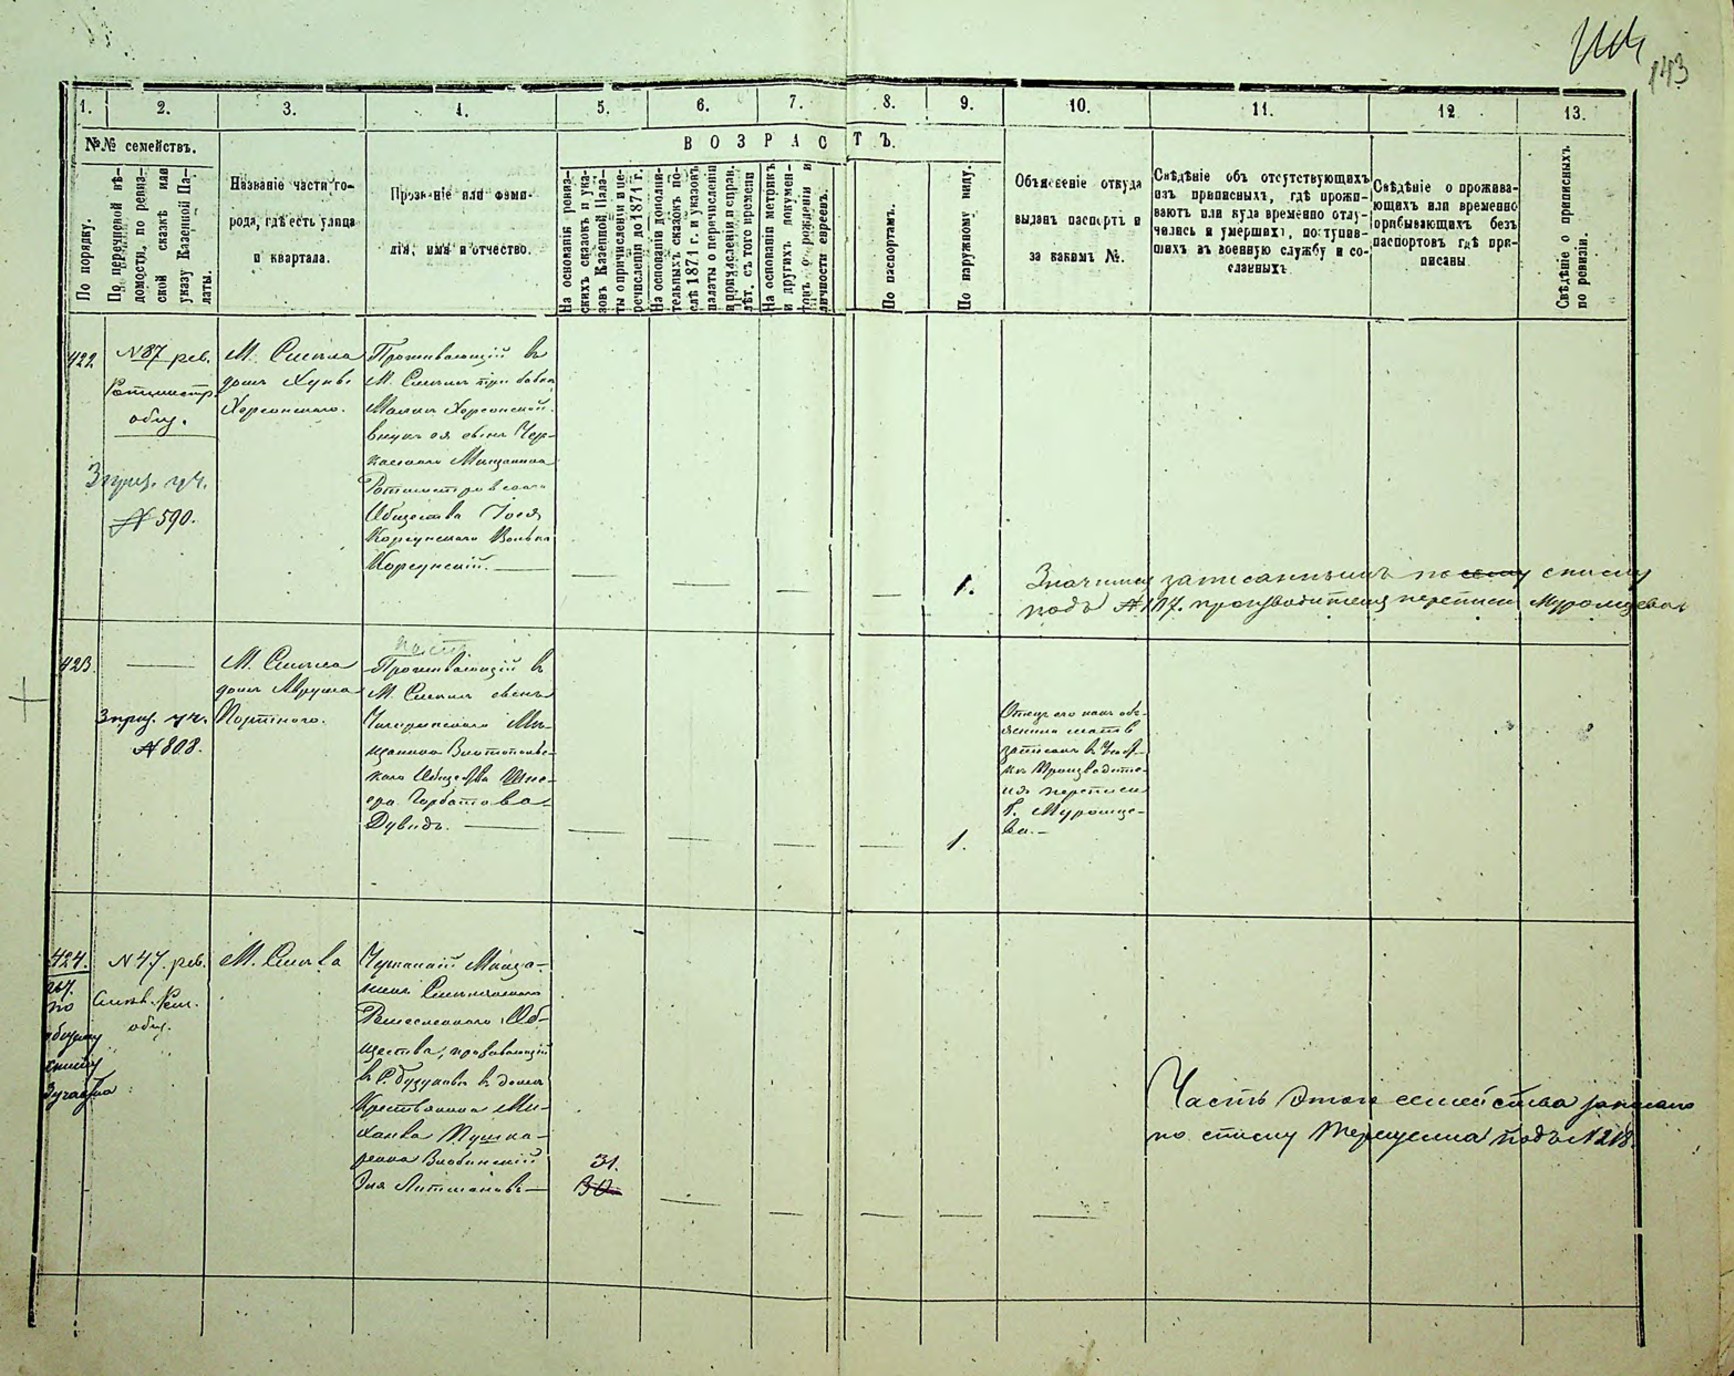 143
1.
2.
3.
4.
5.
6.
7.
8.
9.
10.
11.
12
13.
№№ семействъ.
ВОЗРАСТЪ.
По порядку.
По перечневой вѣ-
домости, по ревиз-
ской сказкѣ или
указу Казенной Па-
латы.
Названіе части го-
рода, гдѣ есть улица
и квартала.
Прозваніе или фами-
лія, имя и отчество.
На основаніи ревиз-
скихъ сказокъ и ука-
зовъ Казенной Пала-
ты о причисленіи и пе-
речисленіи до 1871 г.
На основаніи дополни-
тельныхъ сказокъ по-
слѣ 1871 г. и указовъ
палаты о перечисленіи
и причисленіи и справ.
лѣт. съ того времени
На основаніи метрикъ
и другихъ докумен-
товъ о рожденіи и
личности евреевъ.
По паспортамъ.
По наружному виду.
Объясненіе откуда
выданъ паспортъ и
за какимъ №.
Свѣдѣніе объ отсутствующихъ
изъ приписныхъ, гдѣ прожи-
ваютъ или куда временно отлу-
чились и умершихъ, поступив-
шихъ въ военную службу и со-
сланныхъ
Свѣдѣніе о прожива-
ющихъ или временно
прибывающихъ безъ
паспортовъ гдѣ при-
писаны
Свѣдѣніе о приписныхъ
по ревизіи.
422
N 87 рев.
Ротмистр.
общ.
3 приз. уч.
№ 590.
М. Смѣла
домъ
Херсонскаго.
Проживающій въ
М. Смѣлѣ при бабкѣ
Херсонской
внукъ ея сынъ Чер-
касскаго Мѣщанина
Ротмистровскаго
Общества
Корсунскаго
Корсунскій.
1.
Значится записаннымъ по сему списку
подъ № 117. производителя переписи Муромцева
423.
3 приз. уч.
№ 808.
М. Смѣла
домъ Аврума
Портного.
Проживающій въ
М. Смѣлѣ сынъ
Чигиринскаго Мѣ-
щанина Златополь-
скаго Общества
Горбатова
Дувидъ.
1.
Отецъ его какъ объ-
яснила мать
записанъ въ
Производите-
ля переписи
Г. Муромце-
ва.
424.
267.
по
общему
списку
3 участка
N 47. рев.
Смѣл. Рем.
общ.
М. Смѣла
Черкаскій Мѣща-
нинъ Смѣлянскаго
Ремесленнаго Об-
щества, проживающій
въ С. въ домѣ
Крестьянина Ми-
хаила Пушка-
ренка Злобинскій
31.
30
Часть этого семейства записано
по списку Терещенка подъ N 218.